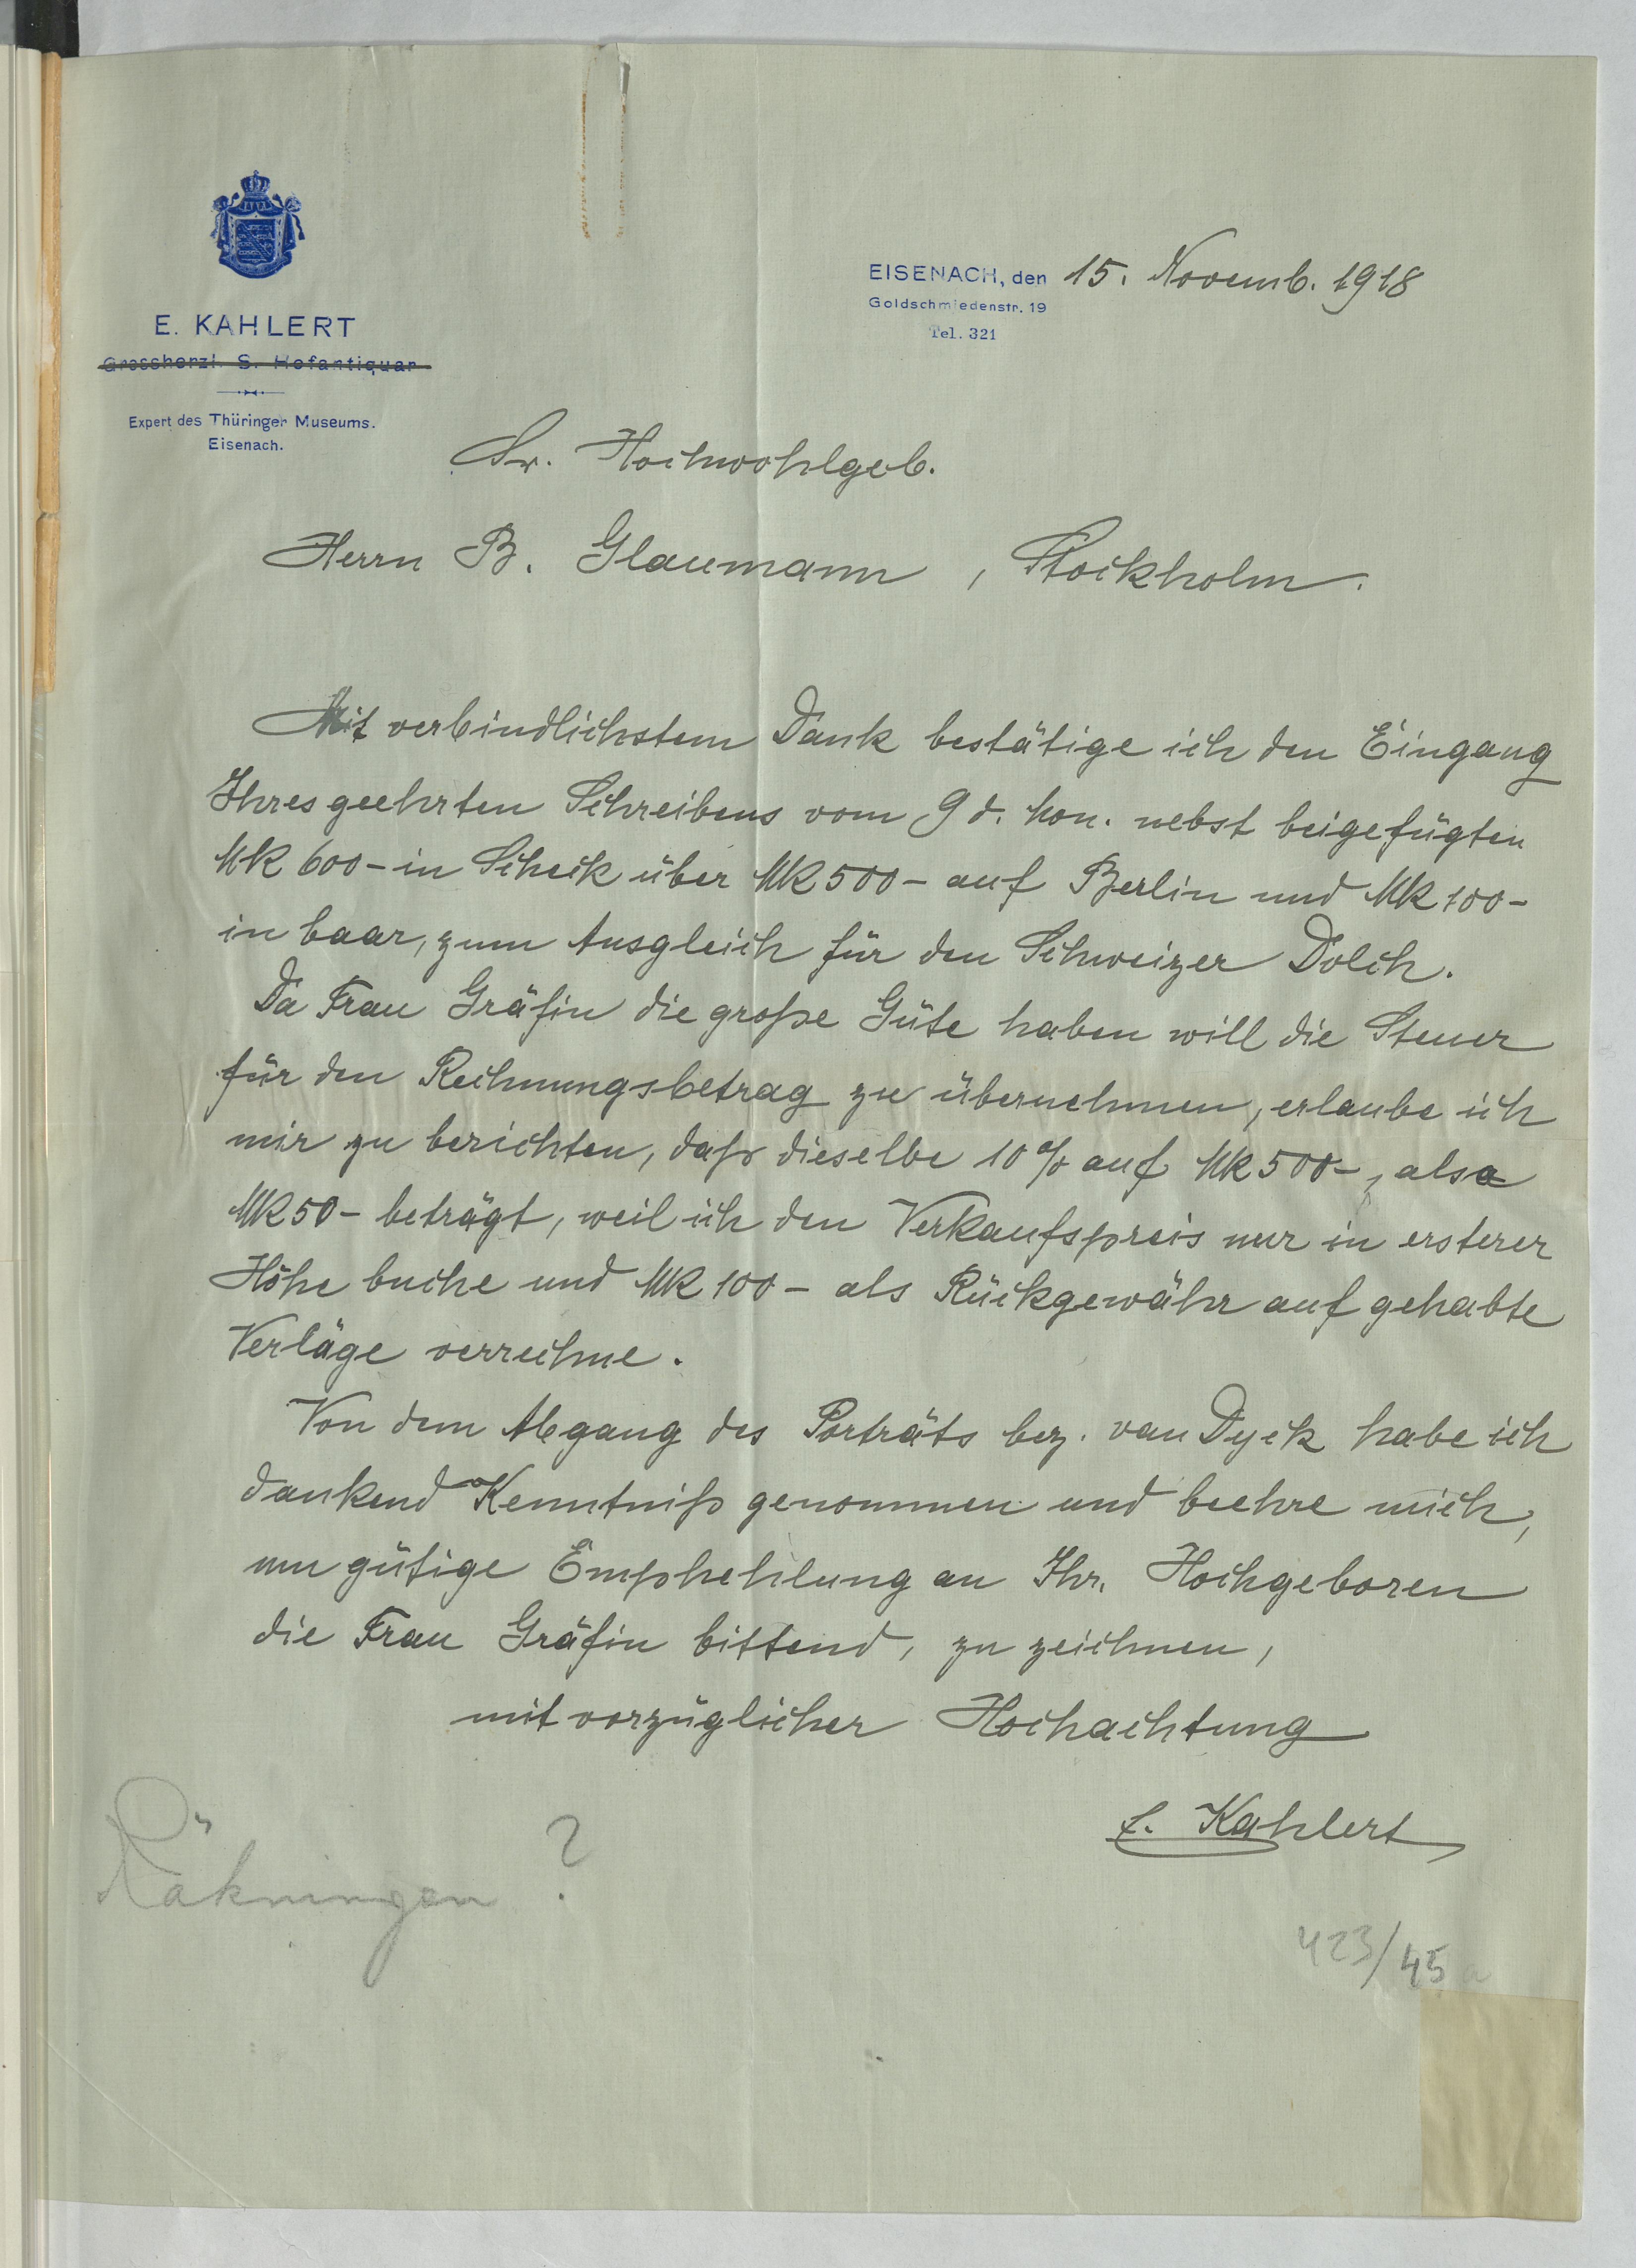 E. KAHLERT
Grossherzl. S. Hofantiquar
Expert des Thüringer Museums.
Eisenach.
EISENACH, den 15. Novemb. 1918
Goldschmiedenstr. 19
Tel. 321
Sr. Hochwohlgeb.
Herrn B. Glaumann, Stockholm.
Mit verbindlichstem Dank bestätige ich den Eingang
Ihres geehrten Schreibens vom 9 d. Mon. nebst beigefügten
Mk 600- in Scheck über Mk 500- auf Berlin und Mk 100-
in baar, zum Ausgleich für den Schweizer Dolch.
Da Frau Gräfin die große Güte haben will die Steuer
für den Rechnungsbetrag zu übernehmen, erlaube ich
mir zu berichten, daß dieselbe 10% auf Mk 500-, also
Mk 50- beträgt, weil ich den Verkaufspreis nur in ersterer
Höhe buche und Mk 100- als Rückgewähr auf gehabte
Verläge verrechne.
Von dem Abgang des Porträts bez. van Dyck habe ich
dankend Kenntniß genommen und beehre mich,
um gütige Emphehlung an Ihr. Hochgeboren
die Frau Gräfin bittend, zu zeichnen,
mit vorzüglicher Hochachtung
E. Kahlert
Räkningen ?
423/45 a